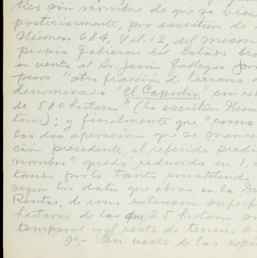 ties sin nombre de que se vien
posteriormente, por escritura
Número 684, Vol. 12, del mismo
propio Gobierno del Estado
en venta al Sr. Jesús Gallegos
pasó "otra fracción de terreno
denominada "El Capulín" con
de 580 hectáreas" (la escritura Núm
; y finalmente que "como
las dos operaciones que se menc
ción precedente, el referido predi
nombre" quedó reducido en 1,
por lo tanto constituído
según los datos que obran en la
Rentas, de una extensión superf
hectáreas de las que 25 hectáreas
temporal y el resto de terreno a
9o.- En vista de las